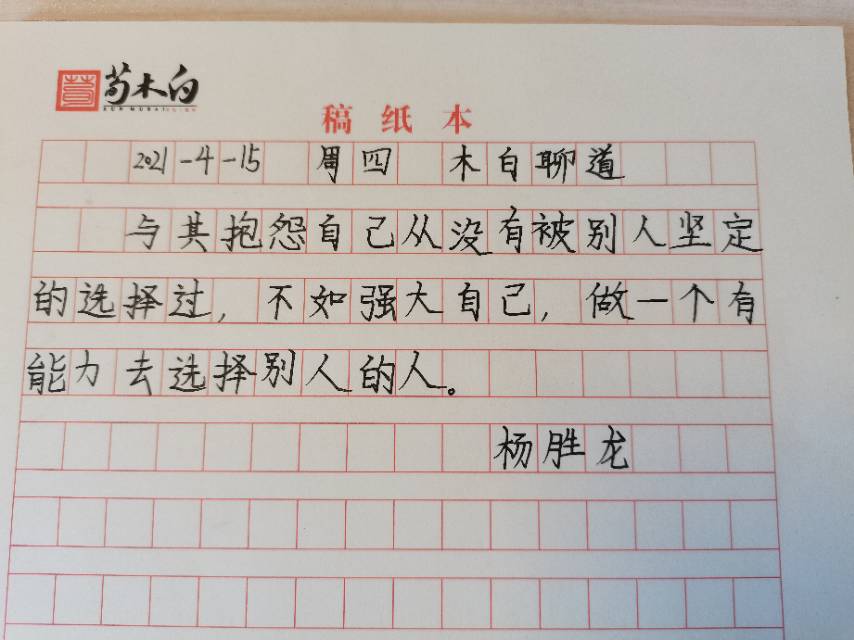 荀木白
稿纸本
2021-4-15 周四 木白聊道
与其抱怨自己从没有被别人坚定
的选择过，不如强大自己，做一个有
能力去选择别人的人。
杨胜龙